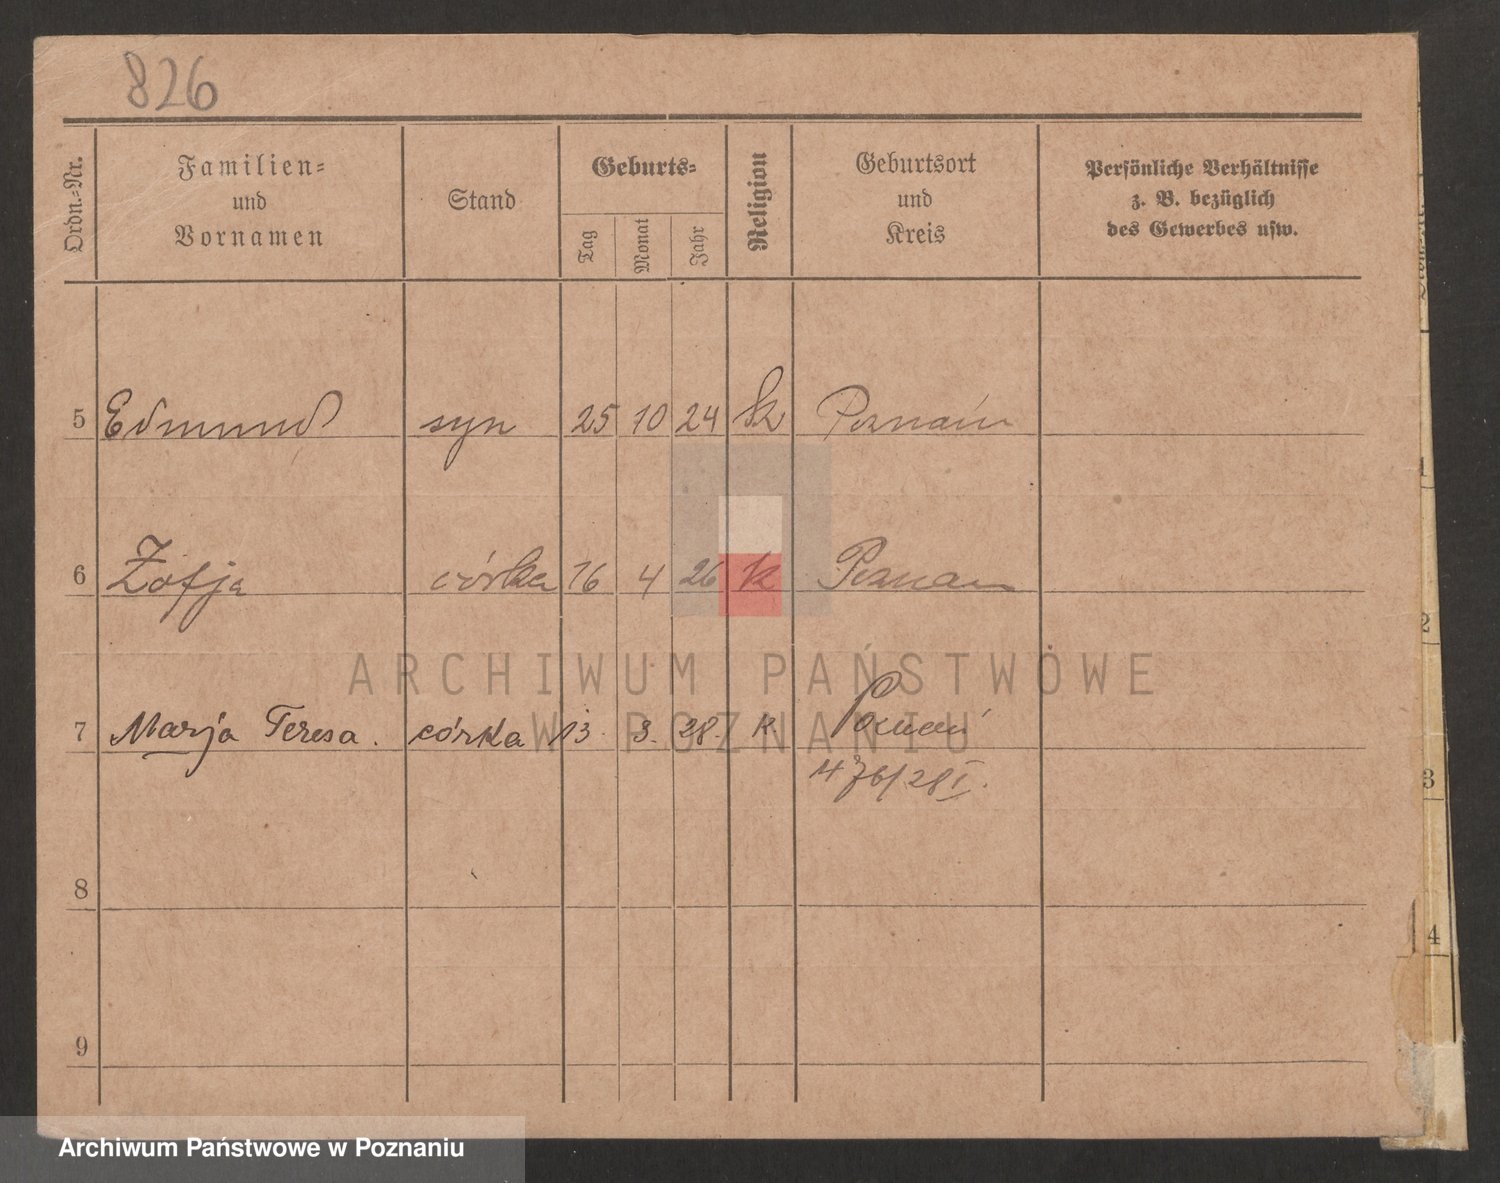 826
Ordn.-Nr.
Familien-
und
Vornamen
Stand
Geburts-
Tag
Monat
Jahr
Religion
Geburtsort
und
Kreis
Persönliche Verhältnisse
z. B. bezüglich
des Gewerbes usw.
5 Edmund syn 25 10 24 k Poznań
6 Zofja córka 16 4 26 k Poznan
7 Marja Teresa. córka 13. 3. 28. k Poznań
476/28 I.
8
9
1
2
3
4
ARCHIWUM PAŃSTWOWE
W POZNANIU
Archiwum Państwowe w Poznaniu